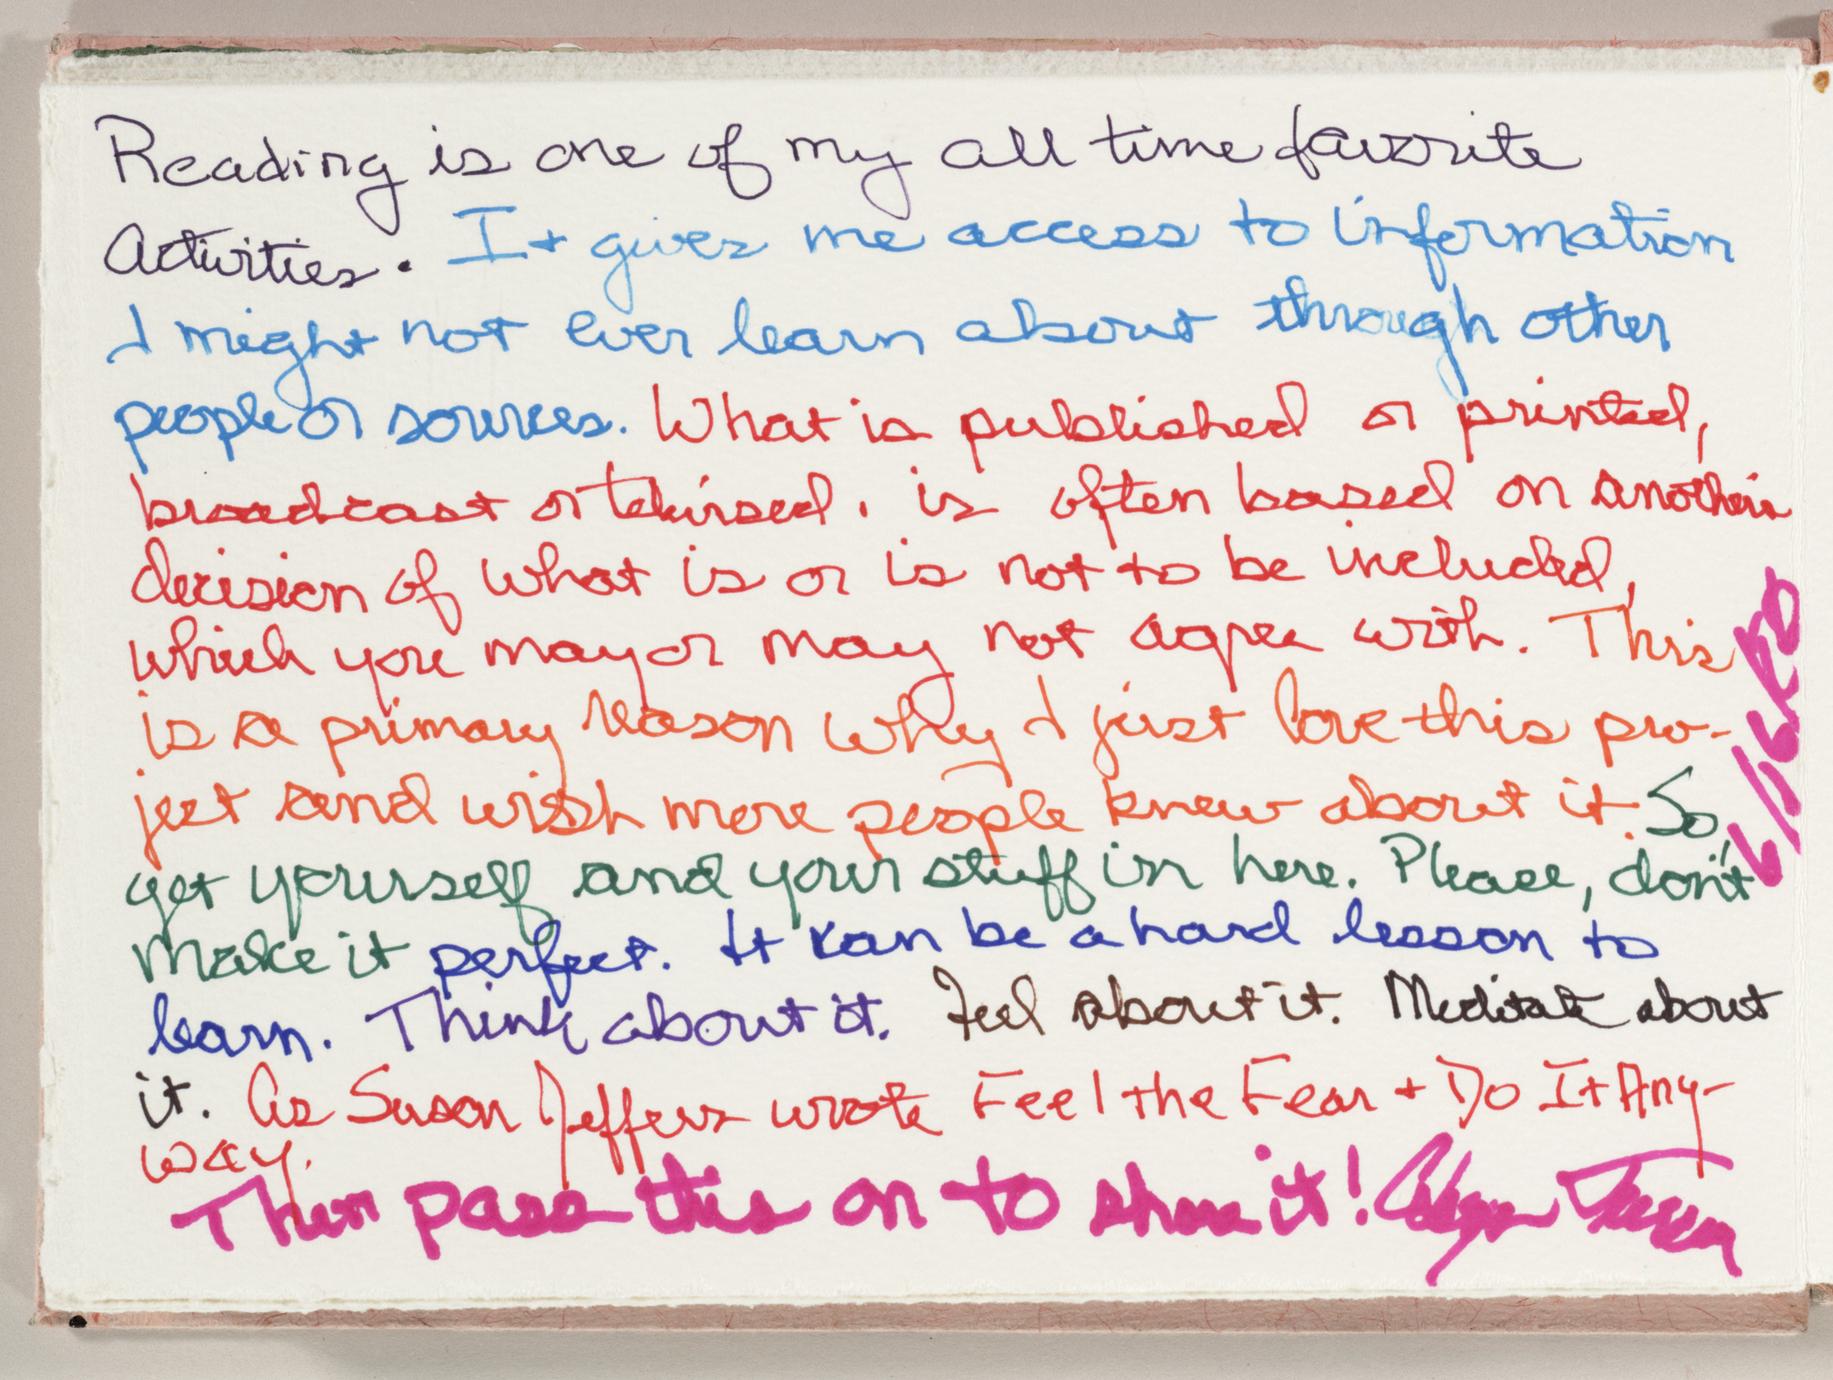 Reading is one of my all time favorite
Activities. It gives me access to information
I might not ever learn about through other
people or sources. What is published or printed,
broadcast or televised, is often based on another's
decision of what is or is not to be included,
which you may or may not agree with. This
is a primary reason why I just love this pro-
ject and wish more people knew about it. So,
get yourself and your stuff in here. Please, don't
make it perfect. It can be a hard lesson to
learn. Think about it. Feel about it. Meditate about
it. As Susan Jeffers wrote Feel the Fear + Do It Any-
way.
Then pass this on to share it!